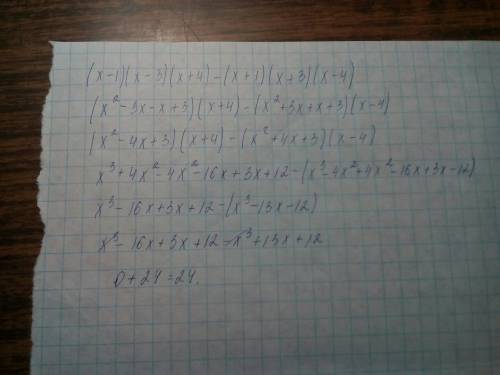 (x-1)(x-3)(x+4)-(x+1)(x+3)(x-4)
(x²-3x-x+3)(x+4)-(x²+3x+x+3)(x-4)
(x²-4x+3)(x+4)-(x²+4x+3)(x-4)
x³+4x²-4x²-16x+3x+12-(x³-4x²+4x²-16x+3x-12)
x³-16x+3x+12-(x³-13x-12)
x³-16x+3x+12-x³+13x+12
0+24=24.